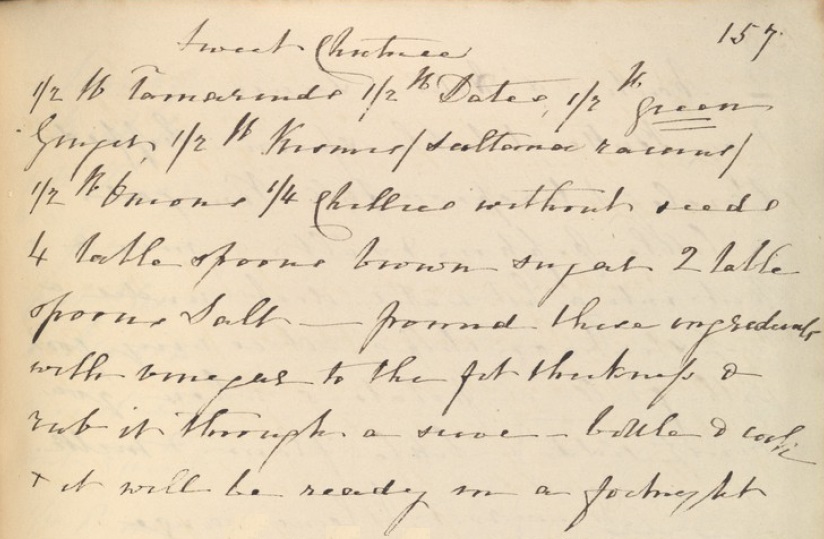 157
Sweet Chutnee
1/2 lb Tamarinds 1/2 lb Dates, 1/2 lb green
Ginger 1/2 lb Kismis / sultana raisins /
1/2 lb Onions 1/4 Chillies without seeds
4 table spoons brown sugar 2 table
spoons Salt — pound these ingredients
with vinegar to the fit thickness &
rub it through a sieve - bottle & cork
+ it will be ready in a fortnight